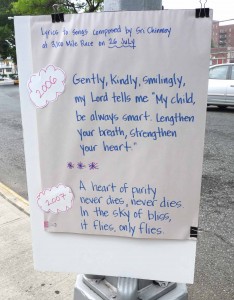 Lyrics to Songs composed by Sri Chinmoy
at 3100 Mile Race on 26 July
2006
Gently, Kindly, smilingly,
my Lord tells me "My child,
be always smart. Lengthen
your breath, strengthen
your heart."
* * *
2007
A heart of purity
never dies, never dies.
In the sky of bliss,
it flies, only flies.